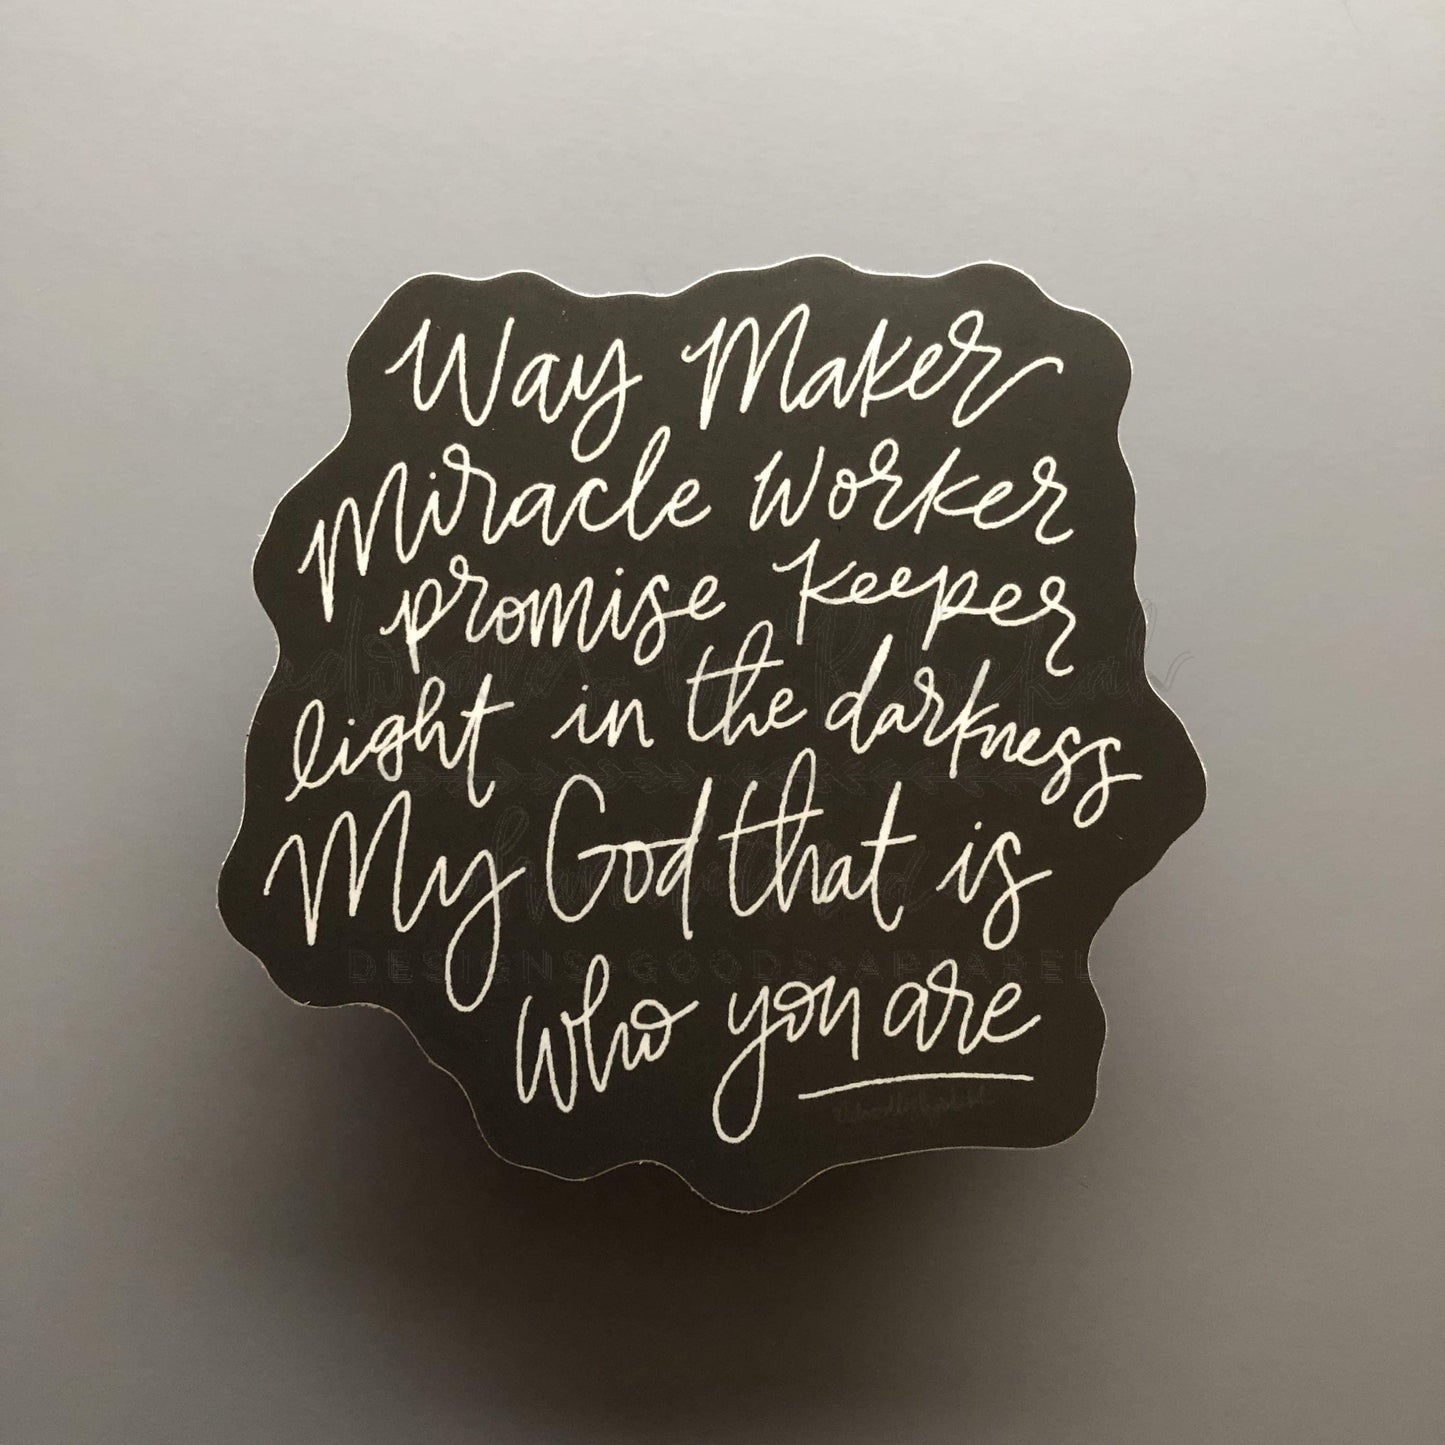 Way Maker
Miracle Worker
promise Keeper
light in the darkness
My God that is
who you are
DESIGNS GOODS + APPAREL